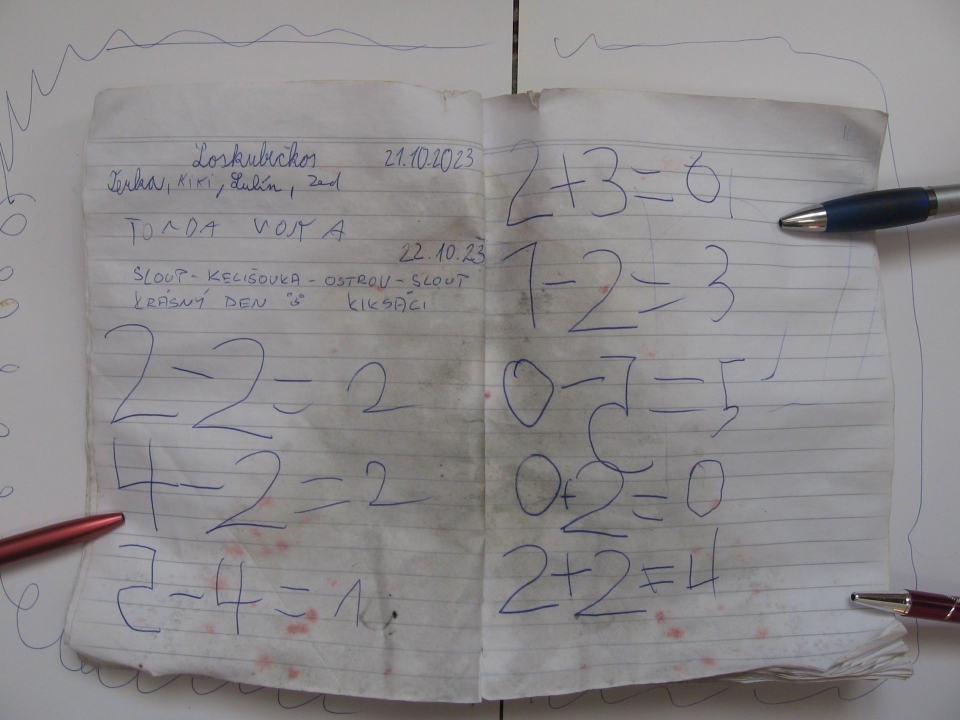 Loskubičkos 21.10.2023
Terka, KIKI, Lulín, Zed
TONDA VOJTA
22.10.23
SLOUP - KELIŠOVKA - OSTROV - SLOUP
KRÁSNÝ DEN KIKSÁCI
2-2=2
4-2=2
5-4=1
2+3=6
1-2=3
0-5=5
0+2=0
2+2=4